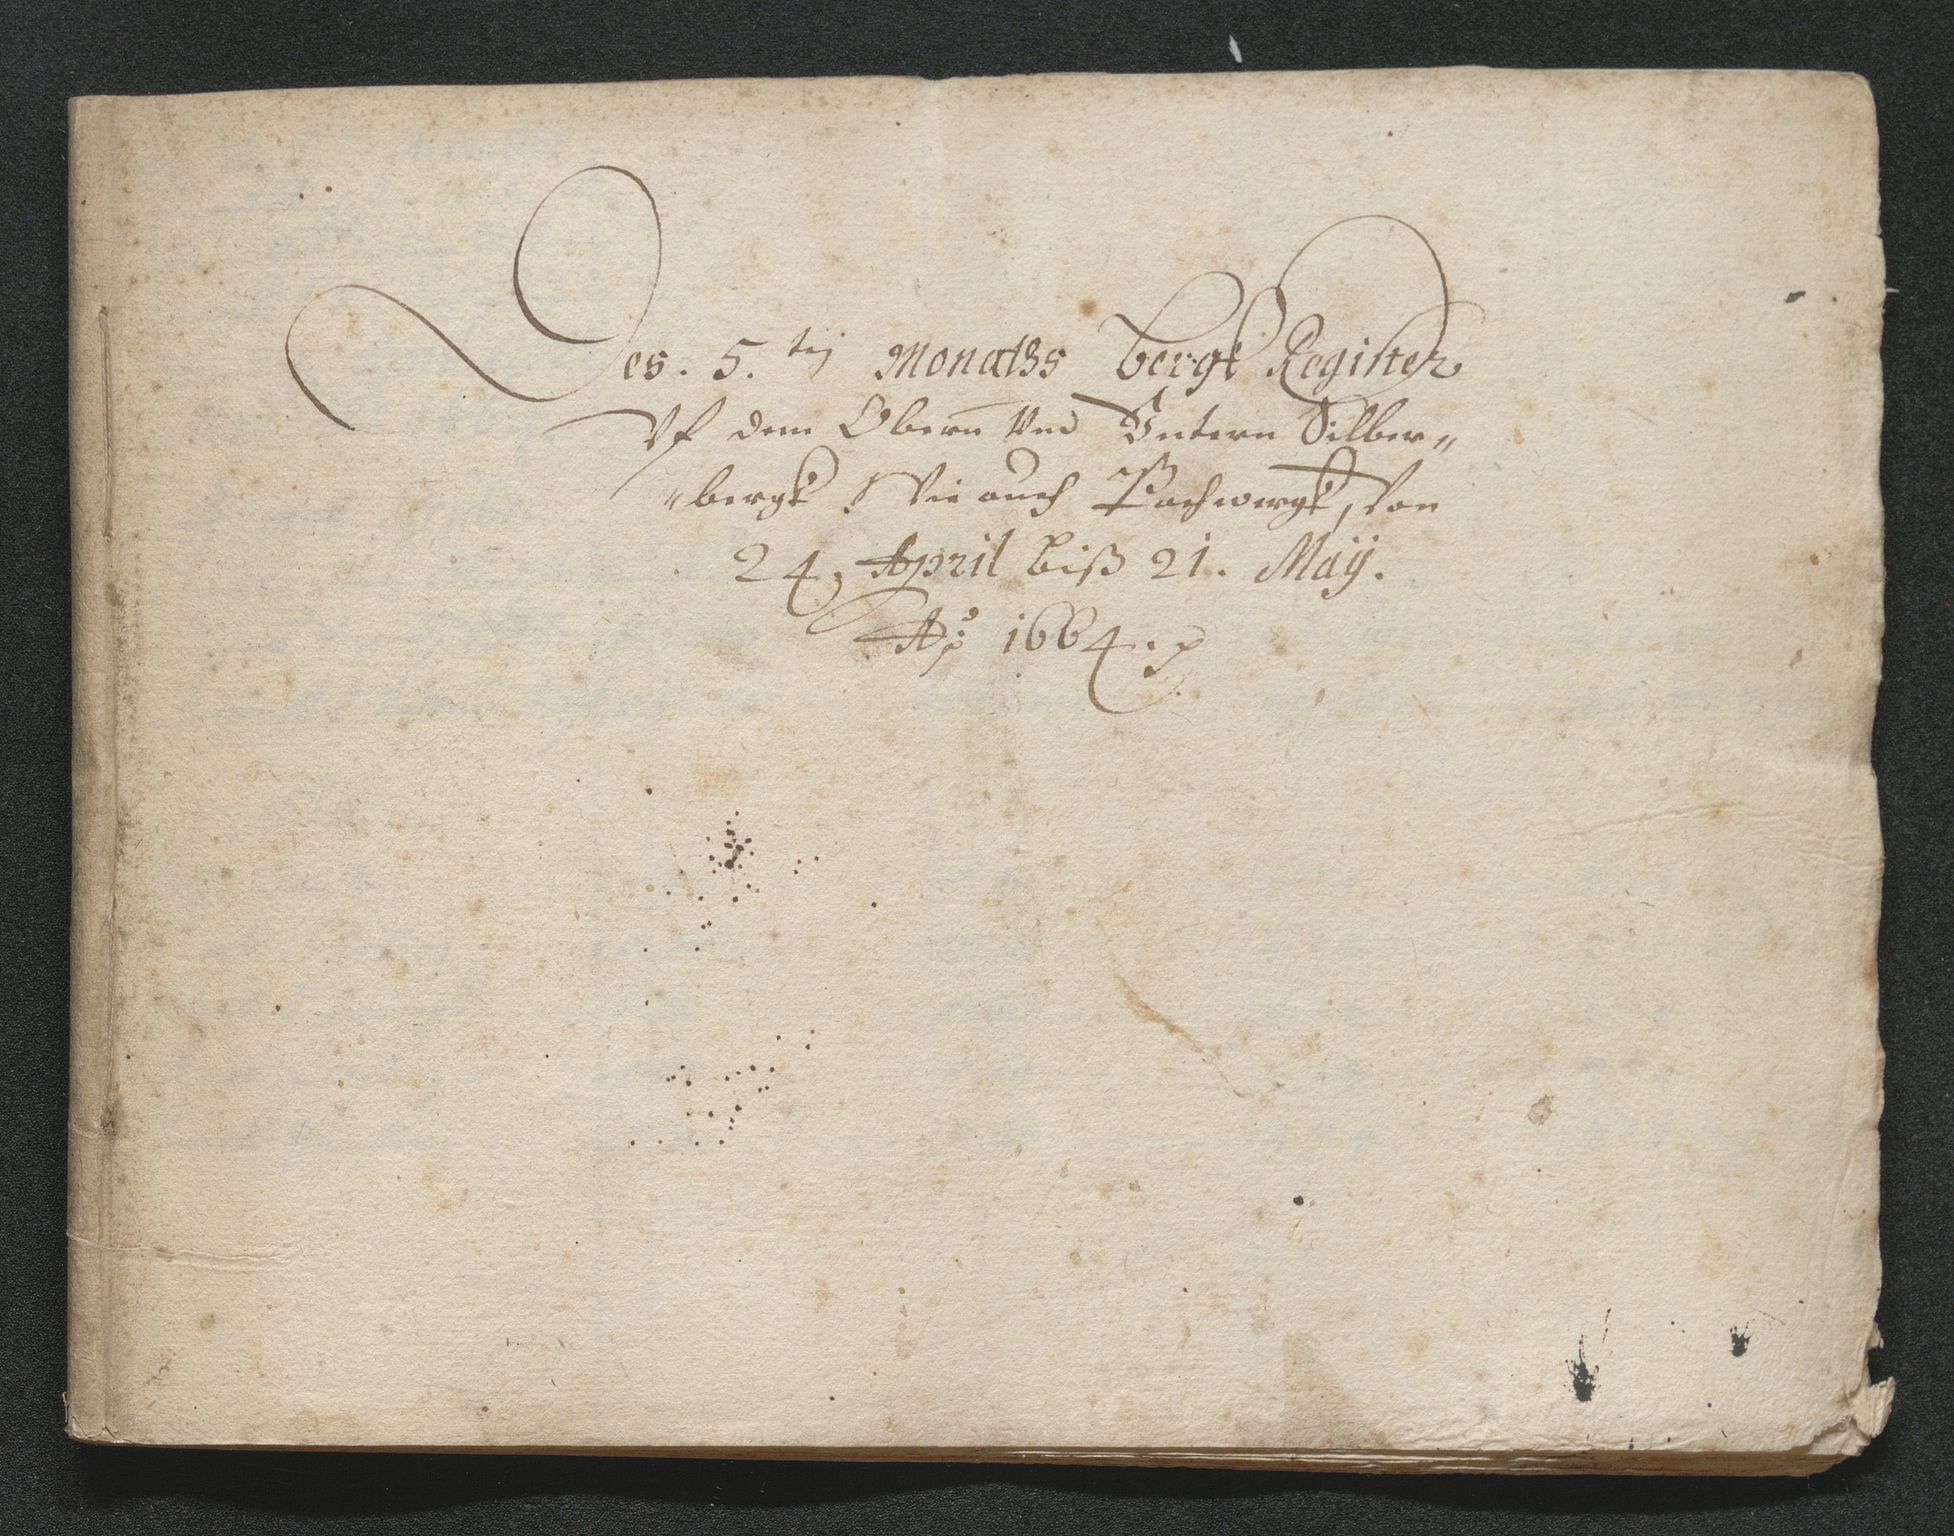 Des. 5.ten Monaths bergk Register
Vf dem Obern Vnd Vntern Silber„
„bergk Wie auch Pochwergk, Von
24, April biß 21. Maij.
Aō 1664.